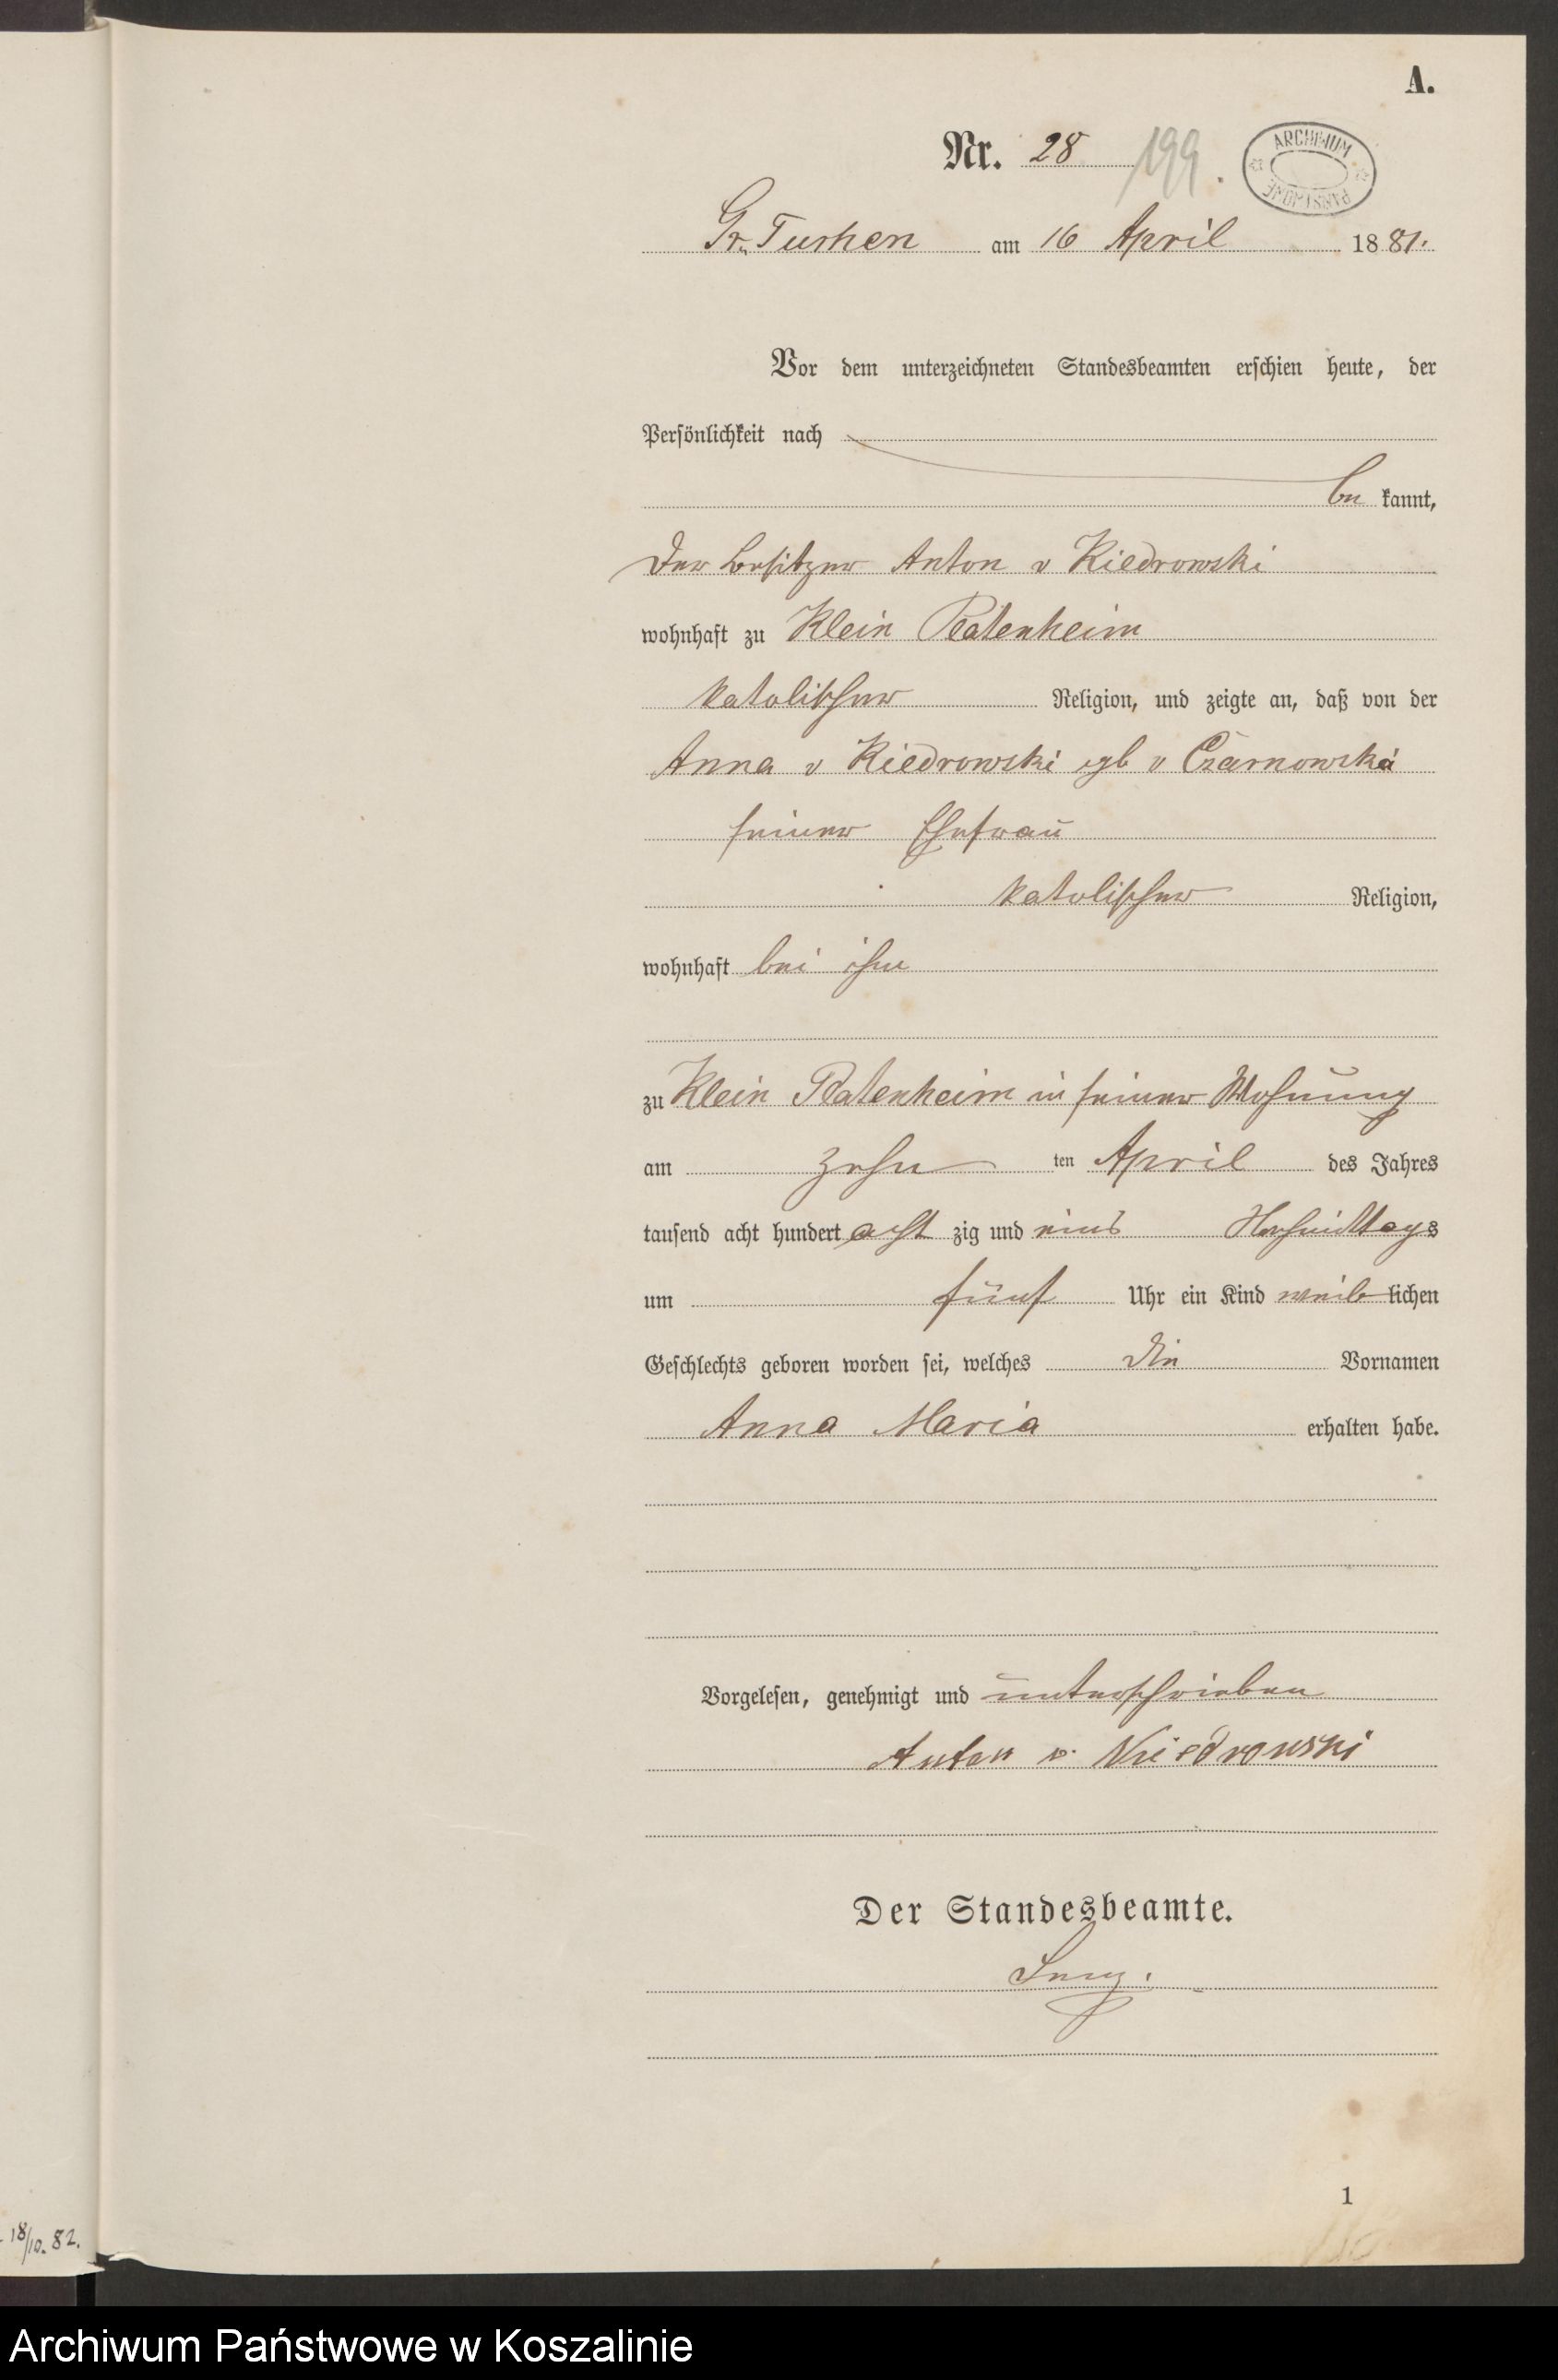 A.
Nr. 28 199.
ARCHIWUM PAŃSTWOWE
Gr. Tuchen am 16 April 1881.
Vor dem unterzeichneten Standesbeamten erschien heute, der
Persönlichkeit nach
be kannt,
der Besitzer Anton v Kiedrowski
wohnhaft zu Klein Platenheim
katolischer Religion, und zeigte an, daß von der
Anna v Kiedrowski geb v Czarnowski
seiner Ehefrau
katolischer Religion,
wohnhaft bei ihm
zu Klein Platenheim in seiner Wohnung
am zehn ten April des Jahres
tausend acht hundert acht zig und eins Nachmittags
um fünf Uhr ein Kind weib lichen
Geschlechts geboren worden sei, welches die Vornamen
Anna Maria erhalten habe.
Vorgelesen, genehmigt und unterschrieben
Anton v. Kiedrowski
Der Standesbeamte.
1
18/10. 82.
Archiwum Państwowe w Koszalinie